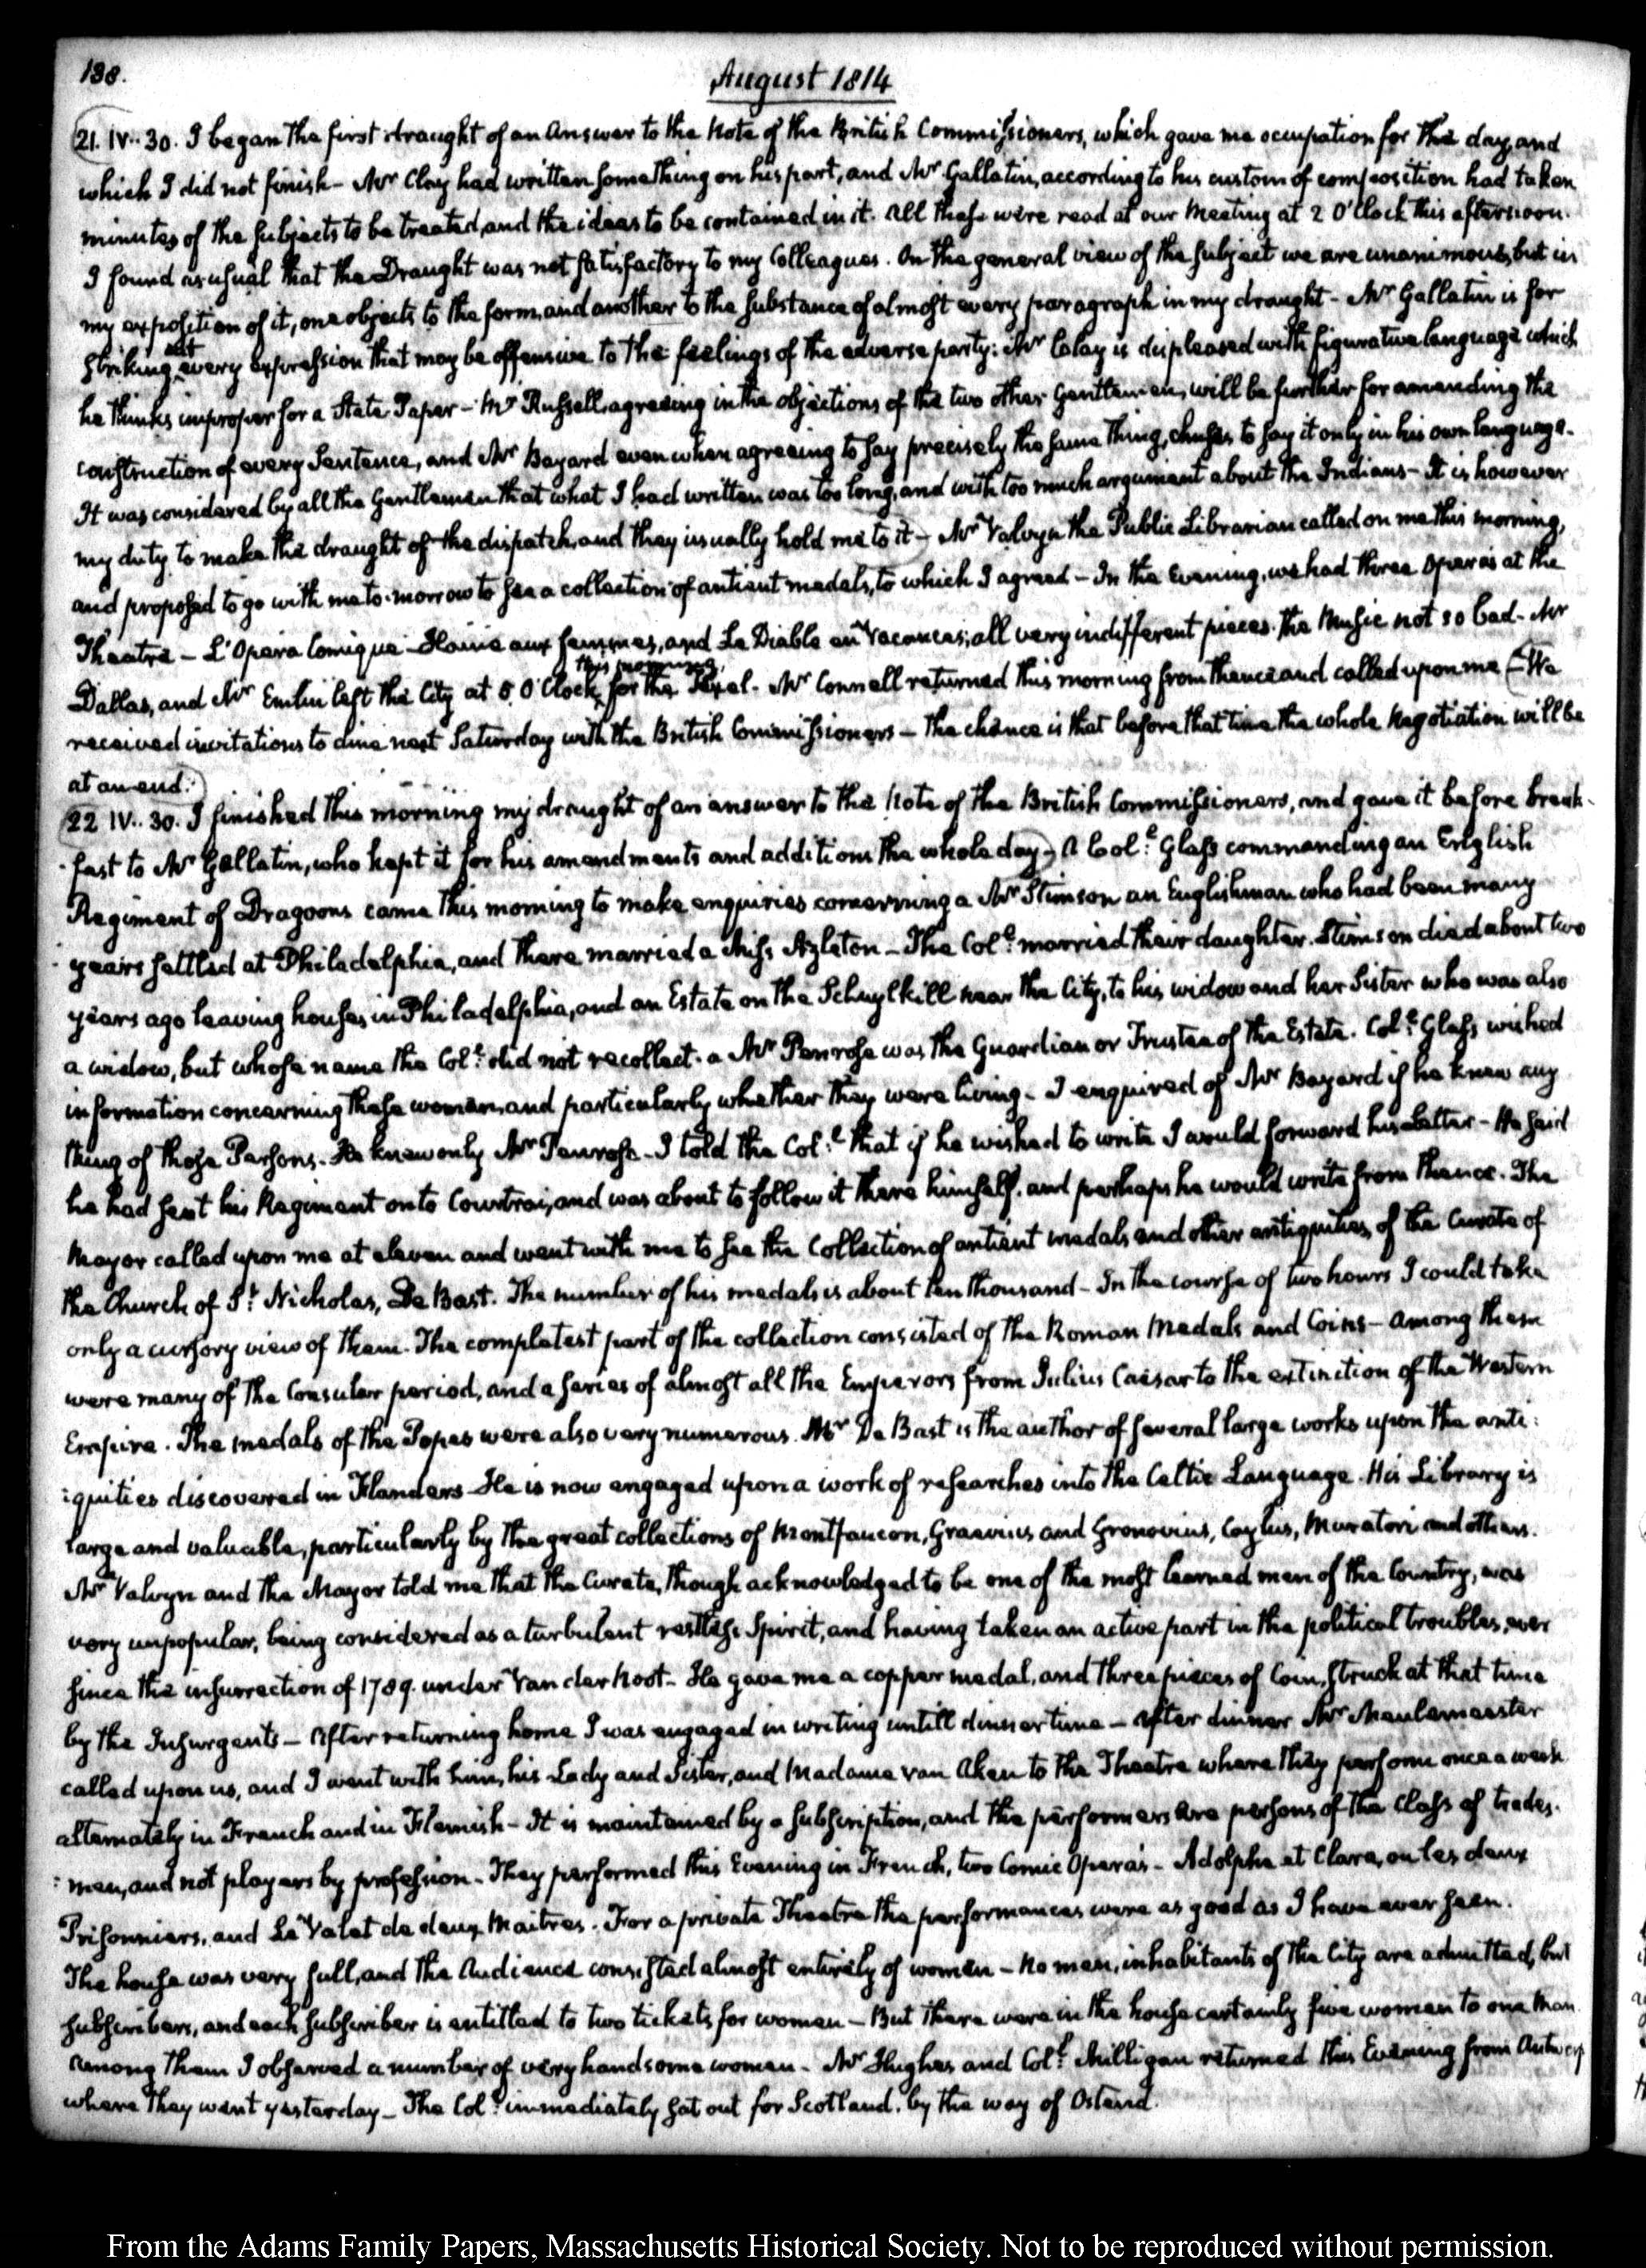 138.
August 1814
21. IV..30. I began the first draught of an Answer to the Note of the British Commissioners, which gave me occupation for the day, and
which I did not finish – Mr Clay had written something on his part, and Mr Gallatin, according to his custom of composition had taken
minutes of the subjects to be treated, and the ideas to be contained in it. All these were read at our Meeting at 2 O'Clock this afternoon.
I found as usual that the Draught was not satisfactory to my Colleagues. On the general view of the subject we are unanimous, but in
my exposition of it, one objects to the form, and another to the substance of almost every paragraph in my draught – Mr Gallatin is for
striking out every expression that may be offensive to the feelings of the adverse party: Mr Clay is displeased with figurative language which
he thinks improper for a State Paper – Mr Russell, agreeing in the objections of the two other Gentlemen, will be further for amending the
construction of every Sentence, and Mr Bayard even when agreeing to say precisely the same thing, chuses to say it only in his own language.
It was considered by all the Gentlemen that what I had written was too long, and with too much argument about the Indians – It is however
my duty to make the draught of the dispatch, and they usually hold me to it – Mr Valvyn the Public Librarian called on me this morning,
and proposed to go with me to-morrow to see a collection of antient medals, to which I agreed – In the Evening, we had three Operas at the
Theatre – L'Opera Comique – Haine aux femmes, and Le Diable en Vacances; all very indifferent pieces. The Music not so bad – Mr
Dallas, and Mr Emlin left the City at 5 O'Clock this morning, for the Texel. Mr Connell returned this morning from thence and called upon me – We
received invitations to dine next Saturday with the British Commissioners – The chance is that before that time the whole Negotiation will be
at an end.
22 IV..30. I finished this morning my draught of an answer to the Note of the British Commissioners, and gave it before break-
fast to Mr Gallatin, who kept it for his amendments and additions the whole day – A Col.l Glass commanding an English
Regiment of Dragoons came this morning to make enquiries concerning a Mr Stimson an Englishman who had been many
years settled at Philadelphia, and there married a Miss Azleton – The Col.l married their daughter. Stimson died about two
years ago leaving houses in Philadelphia, and an Estate on the Schuylkill near the City, to his widow and her Sister who was also
a widow, but whose name the Col.l did not recollect. a Mr Penrose was the Guardian or Trustee of the Estate. Col.l Glass wished
information concerning these women, and particularly whether they were living – I enquired of Mr Bayard if he knew any
thing of those Persons. He knew only Mr Penrose – I told the Col.l that if he wished to write I would forward his Letter – He said
he had sent his Regiment on to Courtrai, and was about to follow it there himself, and perhaps he would write from thence. The
Mayor called upon me at eleven and went with me to see the Collection of antient medals and other antiquities, of the Curate of
the Church of St Nicholas, De Bast. The number of his medals is about ten thousand – In the course of two hours I could take
only a cursory view of them. The completest part of the collection consisted of the Roman Medals and Coins – Among them
were many of the Consular period, and a series of almost all the Emperors from Julius Caesar to the extinction of the Western
Empire. The medals of the Popes were also very numerous. Mr De Bast is the author of several large works upon the anti:
:quities discovered in Flanders – He is now engaged upon a work of researches into the Celtic Language. His Library is
large and valuable, particularly by the great collections of Montfaucon, Graevius and Gronovius, Caylus, Muratori and others.
Mr Valvyn and the Mayor told me that the Curate, though acknowledged to be one of the most learned men of the Country, was
very unpopular, being considered as a turbulent restless Spirit, and having taken an active part in the political troubles, ever
since the insurrection of 1789. under Van der Noot – He gave me a copper medal, and three pieces of Coin, struck at that time
by the Insurgents – After returning home I was engaged in writing untill dinner time – After dinner Mr Meulemeester
called upon us, and I went with him, his Lady and Sister, and Madame van Aken to the Theatre where they perform once a week
alternately in French and in Flemish – It is maintained by a subscription, and the performers are persons of the Class of trades:
:men, and not players by profession – They performed this Evening in French, two Comic Operas – Adolphe et Clara, ou les deux
Prisonniers, and Le Valet de deux Maitres. For a private Theatre the performances were as good as I have ever seen.
The house was very full, and the Audience consisted almost entirely of women – No men, inhabitants of the City are admitted, but
subscribers, and each subscriber is entitled to two tickets for women – But there were in the house certainly five women to one Man.
Among them I observed a number of very handsome women – Mr Hughes and Col.l Milligan returned this Evening from Antwerp
where they went yesterday – The Col.l immediately set out for Scotland, by the way of Ostend.
From the Adams Family Papers, Massachusetts Historical Society. Not to be reproduced without permission.